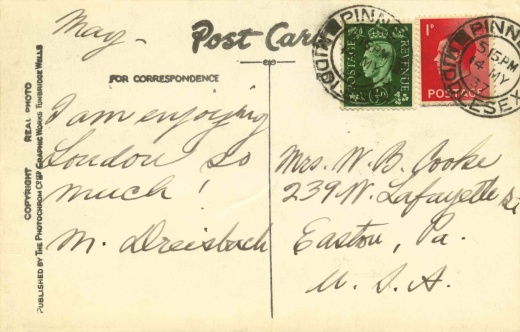 May -
Post Card
FOR CORRESPONDENCE
I am enjoying
London so
much!
M. Dreisbach
Mrs. W. B. Cooke
239 W. Lafayette St
Easton, Pa.
U. S. A.
COPYRIGHT REAL PHOTO
PUBLISHED BY THE PHOTOCHROM CO LTD GRAPHIC WORKS TUNBRIDGE WELLS
POSTAGE
REVENUE
1D
POSTAGE
PINN
MIDD
PINN
5 15 PM
4 MY
MIDD
ESEX